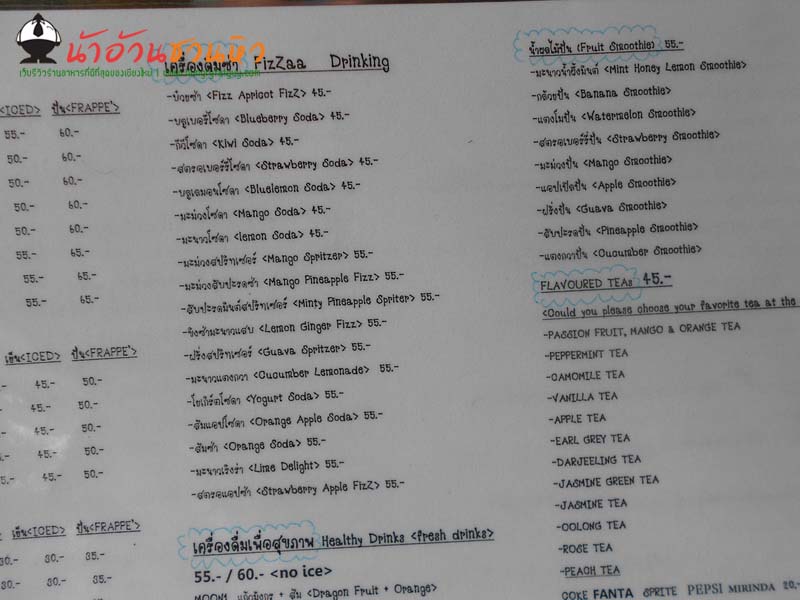 น้าอ้วนชวนหิว
เว็บรีวิวร้านอาหารที่ดีที่สุดของเชียงใหม่
<ICED> ปั่น<FRAPPE'>
55.- 60.-
50.- 60.-
50.- 60.-
50.- 60.-
55.- 65.-
55.- 65.-
55.- 65.-
เย็น<ICED> ปั่น<FRAPPE'>
45.- 50.-
45.- 50.-
45.- 50.-
45.- 50.-
<ICED> ปั่น<FRAPPE'>
30.- 30.- 35.-
30.- 30.- 35.-
เครื่องดื่มซ่า FizZaa Drinking
-บ๊วยซ่า <Fizz Apricot FizZ> 45.-
-บลูเบอรี่โซดา <Blueberry Soda> 45.-
-กีวีโซดา <Kiwi Soda> 45.-
-สตรอเบอร์รี่โซดา <Strawberry Soda> 45.-
-บลูเลมอนโซดา <Bluelemon Soda> 45.-
-มะม่วงโซดา <Mango Soda> 45.-
-มะนาวโซดา <lemon Soda> 45.-
-มะม่วงสปริทเซอร์ <Mango Spritzer> 55.-
-มะม่วงสับปะรดซ่า <Mango Pineapple Fizz> 55.-
-สับปะรดมินต์สปริทเซอร์ <Minty Pineapple Spriter> 55.-
-ขิงซ่ามะนาวแสบ <Lemon Ginger Fizz> 55.-
-ฝรั่งสปริทเซอร์ <Guava Spritzer> 55.-
-มะนาวแตงกวา <Cucumber Lemonade> 55.-
-โยเกิร์ตโซดา <Yogurt Soda> 55.-
-ส้มแอปโซดา <Orange Apple Soda> 55.-
-ส้มซ่า <Orange Soda> 55.-
-มะนาวเริงร่า <Lime Delight> 55.-
-สตรอแอปซ่า <Strawberry Apple FizZ> 55.-
เครื่องดื่มเพื่อสุขภาพ Healthy Drinks <fresh drinks>
55.- / 60.- <no ice>
แก้วมังกร + ส้ม <Dragon Fruit + Orange>
น้ำผลไม้ปั่น (Fruit Smoothie) 55.-
-มะนาวน้ำผึ้งมินต์ <Mint Honey Lemon Smoothie>
-กล้วยปั่น <Banana Smoothie>
-แตงโมปั่น <Watermelon Smoothie>
-สตรอเบอร์รี่ปั่น <Strawberry Smoothie>
-มะม่วงปั่น <Mango Smoothie>
-แอปเปิ้ลปั่น <Apple Smoothie>
-ฝรั่งปั่น <Guava Smoothie>
-สับปะรดปั่น <Pineapple Smoothie>
-แตงกวาปั่น <Cucumber Smoothie>
FLAVOURED TEAs 45.-
<Could you please choose your favorite tea at the
-PASSION FRUIT, MANGO & ORANGE TEA
-PEPPERMINT TEA
-CAMOMILE TEA
-VANILLA TEA
-APPLE TEA
-EARL GREY TEA
-DARJEELING TEA
-JASMINE GREEN TEA
-JASMINE TEA
-OOLONG TEA
-ROSE TEA
-PEACH TEA
COKE FANTA SPRITE PEPSI MIRINDA 20.-